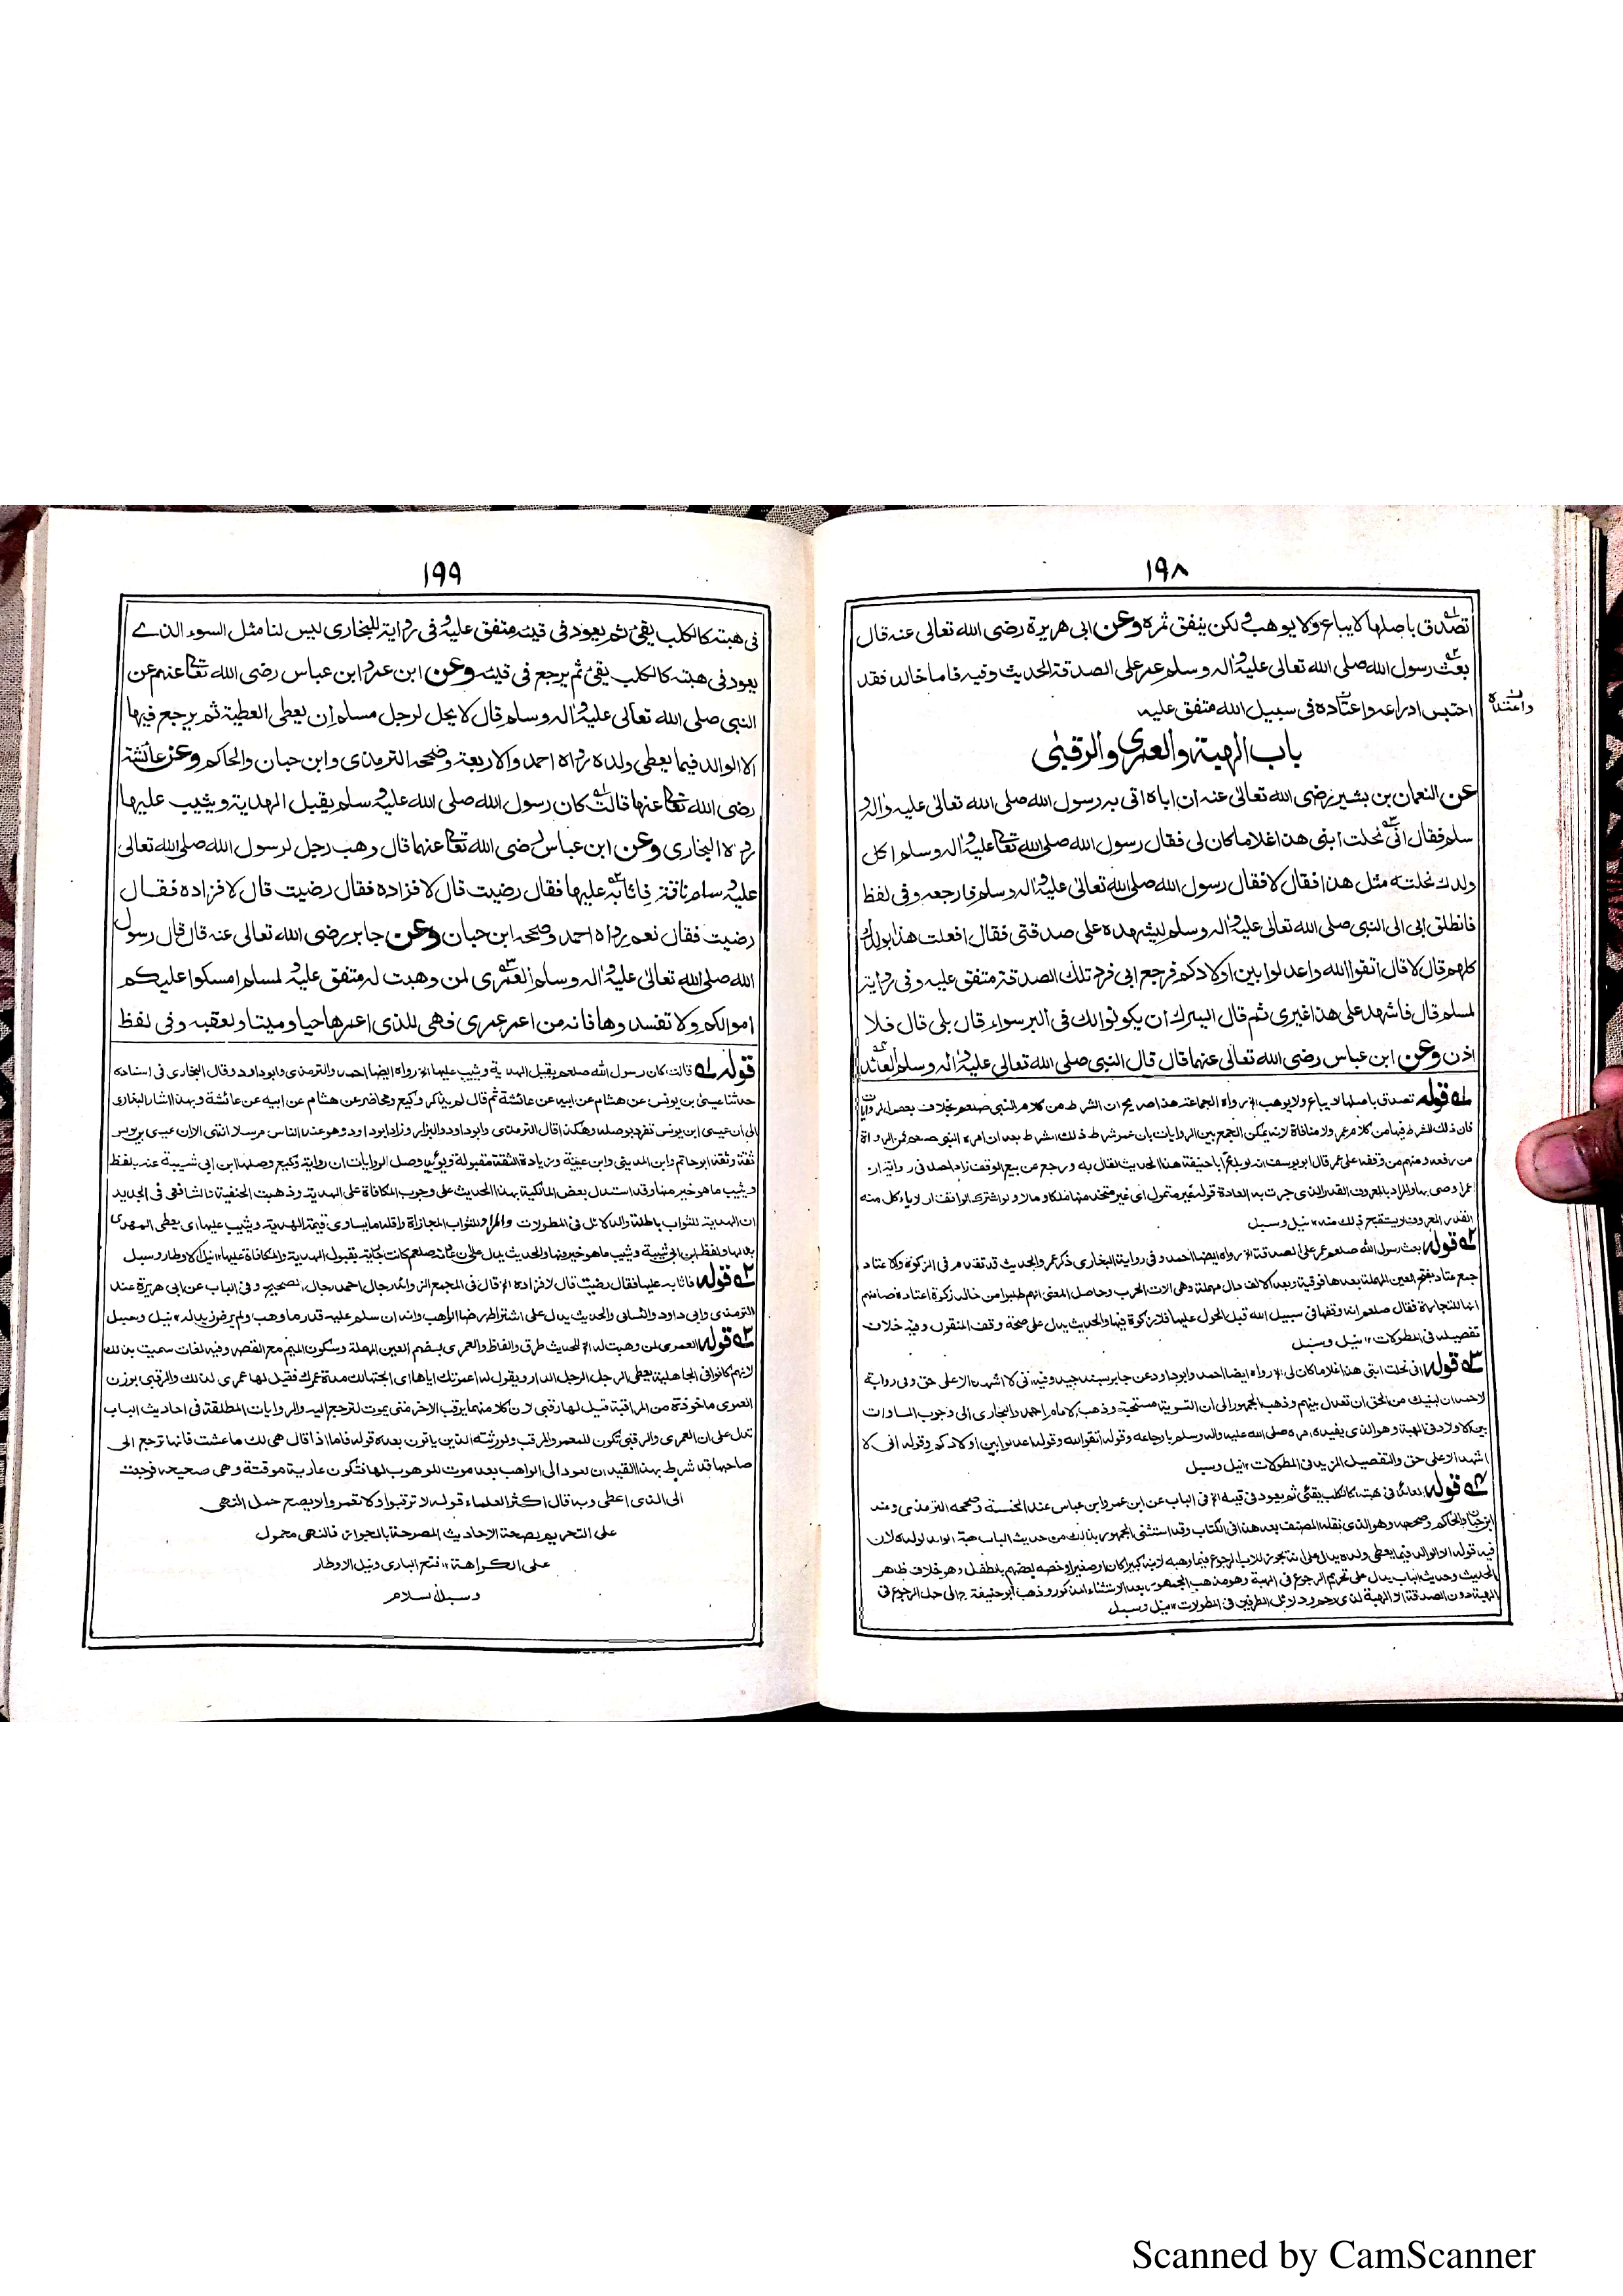 ١٩٨
تصدق باصلها لا يباع ولا يوهب ولكن ينفق ثمره وعن ابى هريرة رضى الله تعالى عنه قال
بعث رسول الله صلى الله تعالى عليه واله وسلم عمر على الصدقة الحديث وفيه فاما خالد فقد
احتبس ادراعه واعتاده فى سبيل الله متفق عليه
باب الهبة والعمرى والرقبى
عن النعمان بن بشير رضى الله تعالى عنه ان اباه اتى به رسول الله صلى الله تعالى عليه واله و
سلم فقال انى نحلت ابنى هذا غلاما كان لى فقال رسول الله صلى الله تعا عليه واله وسلم اكل
ولدك نحلته مثل هذا فقال لا فقال رسول الله صلى الله تعالى عليه واله وسلم فارجعه وفى لفظ
فانطلق ابى الى النبى صلى الله تعالى عليه واله وسلم ليشهده على صدقتى فقال افعلت هذا بولدك
كلهم قال لا قال اتقوا الله واعدلوا بين اولادكم فرجع ابى فرد تلك الصدقة متفق عليه وفى رواية
لمسلم قال فاشهد على هذا غيرى ثم قال ايسرك ان يكونوا لك فى البر سواء قال بلى قال فلا
اذن وعن ابن عباس رضى الله تعالى عنهما قال قال النبى صلى الله تعالى عليه واله وسلم العائد
قوله تصدق باصلها لا يباع ولا يوهب الخ رواه الجماعة هذا صريح ان الشرط من كلام النبى صلعم بخلاف بعض الروايات
فان ذلك الشرط فيها من كلام عمر ولا منافاة لانه يمكن الجمع بين الروايات بان عمر شرط ذلك الشرط بعد ان امره النبى صلعم فمن الرواة
من رفعه ومنهم من وقفه على عمر قال ابو يوسف انه لو بلغ ابا حنيفة هذا الحديث لقال به ورجع عن بيع الوقف زاد احمد فى رواية ان
القدر المعروف لا يستقبح ذلك منه ١٢ نيل وسبل
قوله بعث رسول الله صلعم عمر على الصدقة الخ رواه ايضا احمد وفى رواية البخارى ذكر عمر والحديث قد تقدم فى الزكوة والاعتاد
جمع عتاد بفتح العين المهملة بعدها فوقية وبعد الالف دال مهملة وهى الات الحرب وحاصل المعنى انهم طلبوا من خالد زكوة اعتاده ظنا منهم
انها للتجارة فقال صلعم انه وقفها فى سبيل الله قبل الحول عليها فلا زكوة فيها والحديث يدل على صحة وقف المنقول وفيه خلاف
تفصيله فى المطولات ١٢ نيل وسبل
قوله انى نحلت ابنى هذا غلاما كان لى الخ رواه ايضا احمد وابوداود عن جابر بسند جيد وفيه انى لا اشهد الا على حق وفى رواية
لاحمد ان لبنيك من الحق ان تعدل بينهم وذهب الجمهور الى ان التسوية مستحبة وذهب الامام احمد والبخارى الى وجوب المساوات
بين الاولاد فى الهبة وهو الذى يفيده امره صلى الله عليه واله وسلم بارجاعه وقوله اتقوا الله وقوله اعدلوا بين اولادكم وقوله انى لا
اشهد الا على حق والتفصيل المزيد فى المطولات ١٢ نيل وسبل
قوله العائد فى هبته كالكلب يقئ ثم يعود فى قيئه الخ فى الباب عن ابن عمر وابن عباس عند الخمسة وصححه الترمذى وعند
ابن حبان والحاكم وصححه وهو الذى نقله المصنف بعد هذا فى الكتاب وقد استثنى الجمهور بذالك من حديث الباب هبة الوالد لولده لان
فيه قوله الا الوالد فيما يعطى ولده يدل على انه يجوز للاب الرجوع فيما وهبه لابنه كبيرا كان او صغيرا وخصه بعضهم بالطفل وهو خلاف ظاهر
الحديث وحديث الباب يدل على تحريم الرجوع فى الهبة وهو مذهب الجمهور بعد الاستثناء المذكور وذهب ابو حنيفة الى حل الرجوع فى
الهبة دون الصدقة الا الهبة لذى رحم ودلائل الطرفين فى المطولات ١٢ نيل وسبل
١٩٩
فى هبته كالكلب يقئ ثم يعود فى قيئه متفق عليه وفى رواية للبخارى ليس لنا مثل السوء الذے
يعود فى هبته كالكلب يقئ ثم يرجع فى قيئه وعن ابن عمر وابن عباس رضى الله تعا عنهم عن
النبى صلى الله تعالى عليه واله وسلم قال لا يحل لرجل مسلم ان يعطى العطية ثم يرجع فيها
الا الوالد فيما يعطى ولده رواه احمد والاربعة وصححه الترمذى وابن حبان والحاكم وعن عائشة
رضى الله تعا عنها قالت كان رسول الله صلى الله عليه وسلم يقبل الهدية ويثيب عليها
رواه البخارى وعن ابن عباس رضى الله تعا عنهما قال وهب رجل لرسول الله صلى الله تعالى
عليه وسلم ناقة فاثابه عليها فقال رضيت قال لا فزاده فقال رضيت قال لا فزاده فقال
رضيت فقال نعم رواه احمد وصححه ابن حبان وعن جابر رضى الله تعالى عنه قال قال رسول
الله صلى الله تعالى عليه واله وسلم العمرى لمن وهبت له متفق عليه ولمسلم امسكوا عليكم
اموالكم ولا تفسدوها فانه من اعمر عمرى فهى للذى اعمرها حيا وميتا ولعقبه وفى لفظ
قوله قالت كان رسول الله صلعم يقبل الهدية ويثيب عليها الخ رواه ايضا احمد والترمذى وابوداود وقال البخارى فى اسناده
حدثنا عيسى بن يونس عن هشام عن ابيه عن عائشة ثم قال لم يذكر وكيع ومحاضر عن هشام عن ابيه عن عائشة وبهذا اشار البخارى
الى ان عيسى ابن يونس تفرد بوصله وهكذا قال الترمذى وابوداود والبزار وزاد ابوداود وهو عند الناس مرسل انتهى الا ان عيسى بن يونس
ثقة وثقه ابو حاتم وابن المدينى وابن عيينة وزيادة الثقة مقبولة ويؤيد وصل الروايات ان رواية وكيع وصلها ابن ابى شيبة عنه بلفظ
ويثيب ما هو خير منها وقد استدل بعض المالكية بهذا الحديث على وجوب المكافاة على الهدية وذهبت الحنفية والشافعى فى الجديد
ان الهدية للثواب باطلة والدلائل فى المطولات والمراد بالثواب المجازاة واقله ما يساوى قيمة الهدية ويثيب عليها اى يعطى المهدى
بدلها ولفظ ابن ابى شيبة ويثيب ما هو خير منها والحديث يدل على ان عادته صلعم كانت جارية بقبول الهدية والمكافاة عليها ١٢ نيل الاوطار وسبل
قوله فاثابه عليها فقال رضيت قال لا فزاده الخ قال فى المجمع الزوائد رجال احمد رجال الصحيح وفى الباب عن ابى هريرة عند
الترمذى وابى داود والنسائى والحديث يدل على اشتراط رضا الواهب وانه ان سلم عليه قدر ما وهب ولم يرض زيد له ١٢ نيل وسبل
قوله العمرى لمن وهبت له الخ للحديث طرق والفاظ والعمرى بضم العين المهملة وسكون الميم مع القصر وفيه لغات سميت بذلك
لانهم كانوا فى الجاهلية يعطى الرجل الرجل الدار ويقول له اعمرتك اياها اى ابحتها لك مدة عمرك فقيل لها عمرى لذلك والرقبى بوزن
العمرى ماخوذة من المراقبة قيل لها رقبى لان كلا منهما يرقب الاخر متى يموت لترجع اليه والروايات المطلقة فى احاديث الباب
تدل على ان العمرى والرقبى تكون للمعمر والمرقب ولورثته الذين ياتون بعده قوله فاما اذا قال هى لك ما عشت فانها ترجع الى
صاحبها قد شرط بهذا القيد ان تعود الى الواهب بعد موت الموهوب لها فتكون عارية موقتة وهى صحيحه فرجعت
الى الذى اعطى وبه قال اكثر العلماء قوله لا ترقبوا ولا تعمروا الا يصح حمل النهى
على التحريم بصحة الاحاديث المصرحة بالجواز فالنهى محمول
على الكراهة ١٢ فتح البارى ونيل الاوطار
وسبل السلام
Scanned by CamScanner